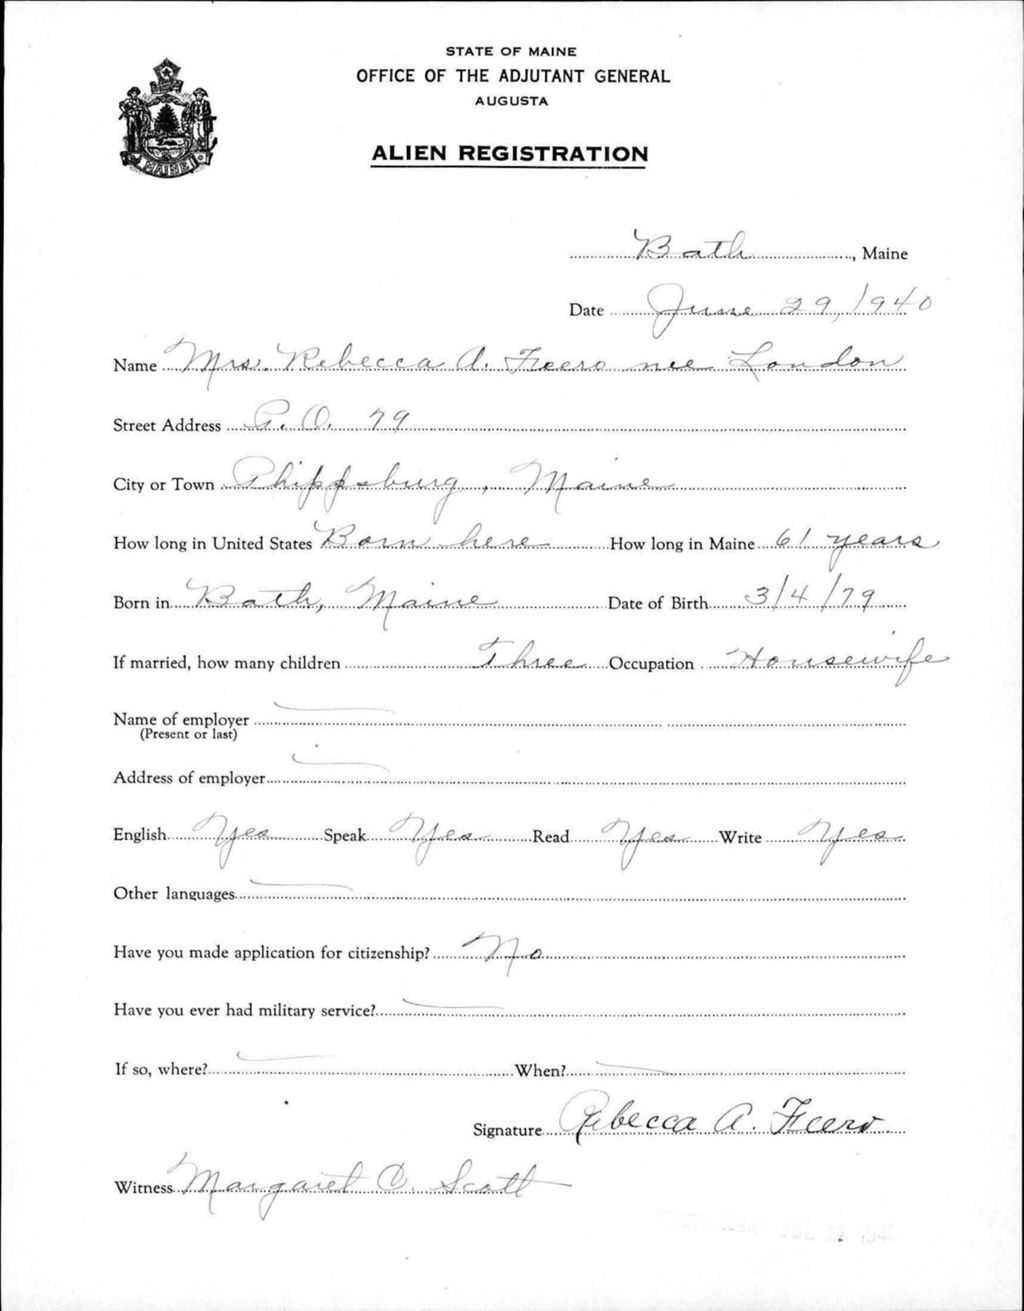 STATE OF MAINE
OFFICE OF THE ADJUTANT GENERAL
AUGUSTA
ALIEN REGISTRATION
MAINE
Bath, Maine
Date June 29, 1940
Name Mrs. Rebecca A. Ficero nee London
Street Address P.O. 79
City or Town Phippsburg, Maine
How long in United States Born here How long in Maine 61 years
Born in Bath, Maine Date of Birth 3/4/79
If married, how many children Three Occupation Housewife
Name of employer
(Present or last)
Address of employer
English Yes Speak Yes Read Yes Write Yes
Other languages
Have you made application for citizenship? No
Have you ever had military service?
If so, where? When?
Signature Rebecca A. Ficero
Witness Margaret C. Scott